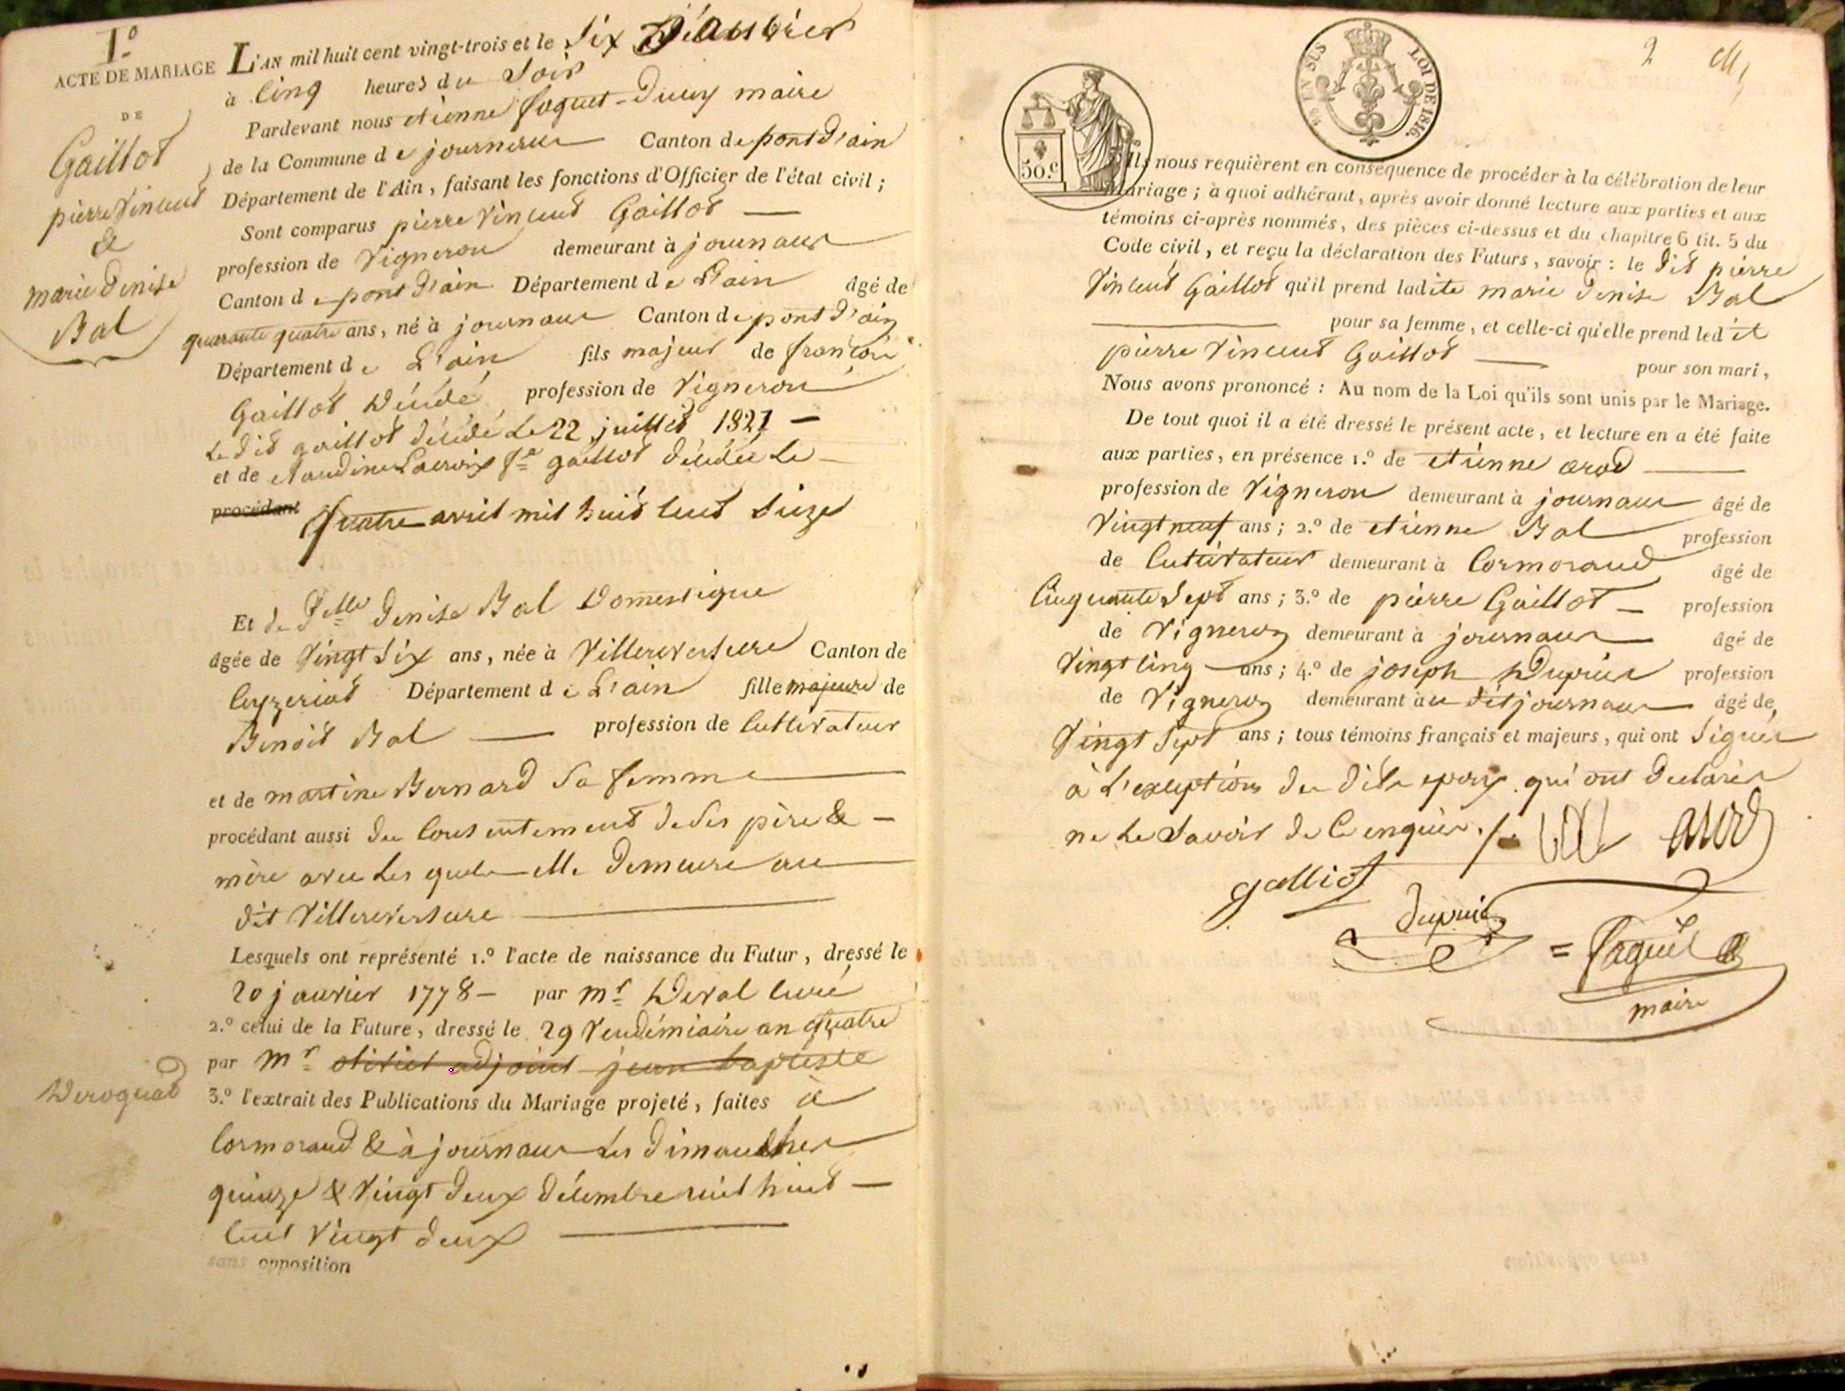 1.º
ACTE DE MARIAGE
DE
Gaillot
pierre Vincent
&
marie denise
Bal
L'AN mil huit cent vingt-trois et le Six Janvier
à Cinq heures du Soir
Pardevant nous etienne maire
de la Commune de journaux Canton de pont d'ain
Département de l'Ain, faisant les fonctions d'Officier de l'état civil;
Sont comparus pierre Vincent Gaillot
profession de Vigneron demeurant à journaux
Canton de pont d'ain Département de L'ain âgé de
quarante quatre ans, né à journaux Canton de pont d'ain
Département de L'ain fils majeur de francois
Gaillot Décédé profession de Vigneron
Le dit gaillot décédé Le 22 juillet 1821
et de Claudine Lacroix fe gaillot décédée le
procédant quatre avril mil huit cent Seize
Et de Delle Denise Bal Domestique
âgée de Vingt Six ans, née à Villereversure Canton de
Ceyzeriat Département de L'ain fille majeure de
Benoit Bal profession de Cultivateur
et de martine Bernard Sa femme
procédant aussi du Consentement de Ses père &
mère avec Les quels elle Demeure au
dit Villereversure
Lesquels ont représenté 1.º l'acte de naissance du Futur, dressé le
20 janvier 1778 par mr Deval Curé
2.º celui de la Future, dressé le 29 Vendémiaire an quatre
par mr adjoint jean baptiste
3.º l'extrait des Publications du Mariage projeté, faites à
Cormoraud & à journaux Les Dimanches
quinze & Vingt Deux Décembre mil huit
Cent Vingt deux
sans opposition
2
EN SUS
LOI DE 1816.
50.c
Ils nous requièrent en conséquence de procéder à la célébration de leur
Mariage; à quoi adhérant, après avoir donné lecture aux parties et aux
témoins ci-après nommés, des pièces ci-dessus et du chapitre 6 tit. 5 du
Code civil, et reçu la déclaration des Futurs, savoir: le dit pierre
Vincent Gaillot qu'il prend ladite marie denise Bal
pour sa femme, et celle-ci qu'elle prend ledit
pierre Vincent Gaillot pour son mari,
Nous avons prononcé: Au nom de la Loi qu'ils sont unis par le Mariage.
De tout quoi il a été dressé le présent acte, et lecture en a été faite
aux parties, en présence 1.º de etienne arod
profession de Vigneron demeurant à journaux âgé de
Vingt neuf ans; 2.º de etienne Bal profession
de Cultivateur demeurant à Cormoraud âgé de
Cinquante Sept ans; 3.º de pierre Gaillot profession
de Vigneron demeurant à journaux âgé de
Vingt Cinq ans; 4.º de joseph Dupuis profession
de Vigneron demeurant au dit journaux âgé de
Vingt Sept ans; tous témoins français et majeurs, qui ont Signés
à L'exception des dits epoux qui ont Declarés
ne Le Savoir de Ce enquis ./.
Bal arod
galliot
dupuis
maire